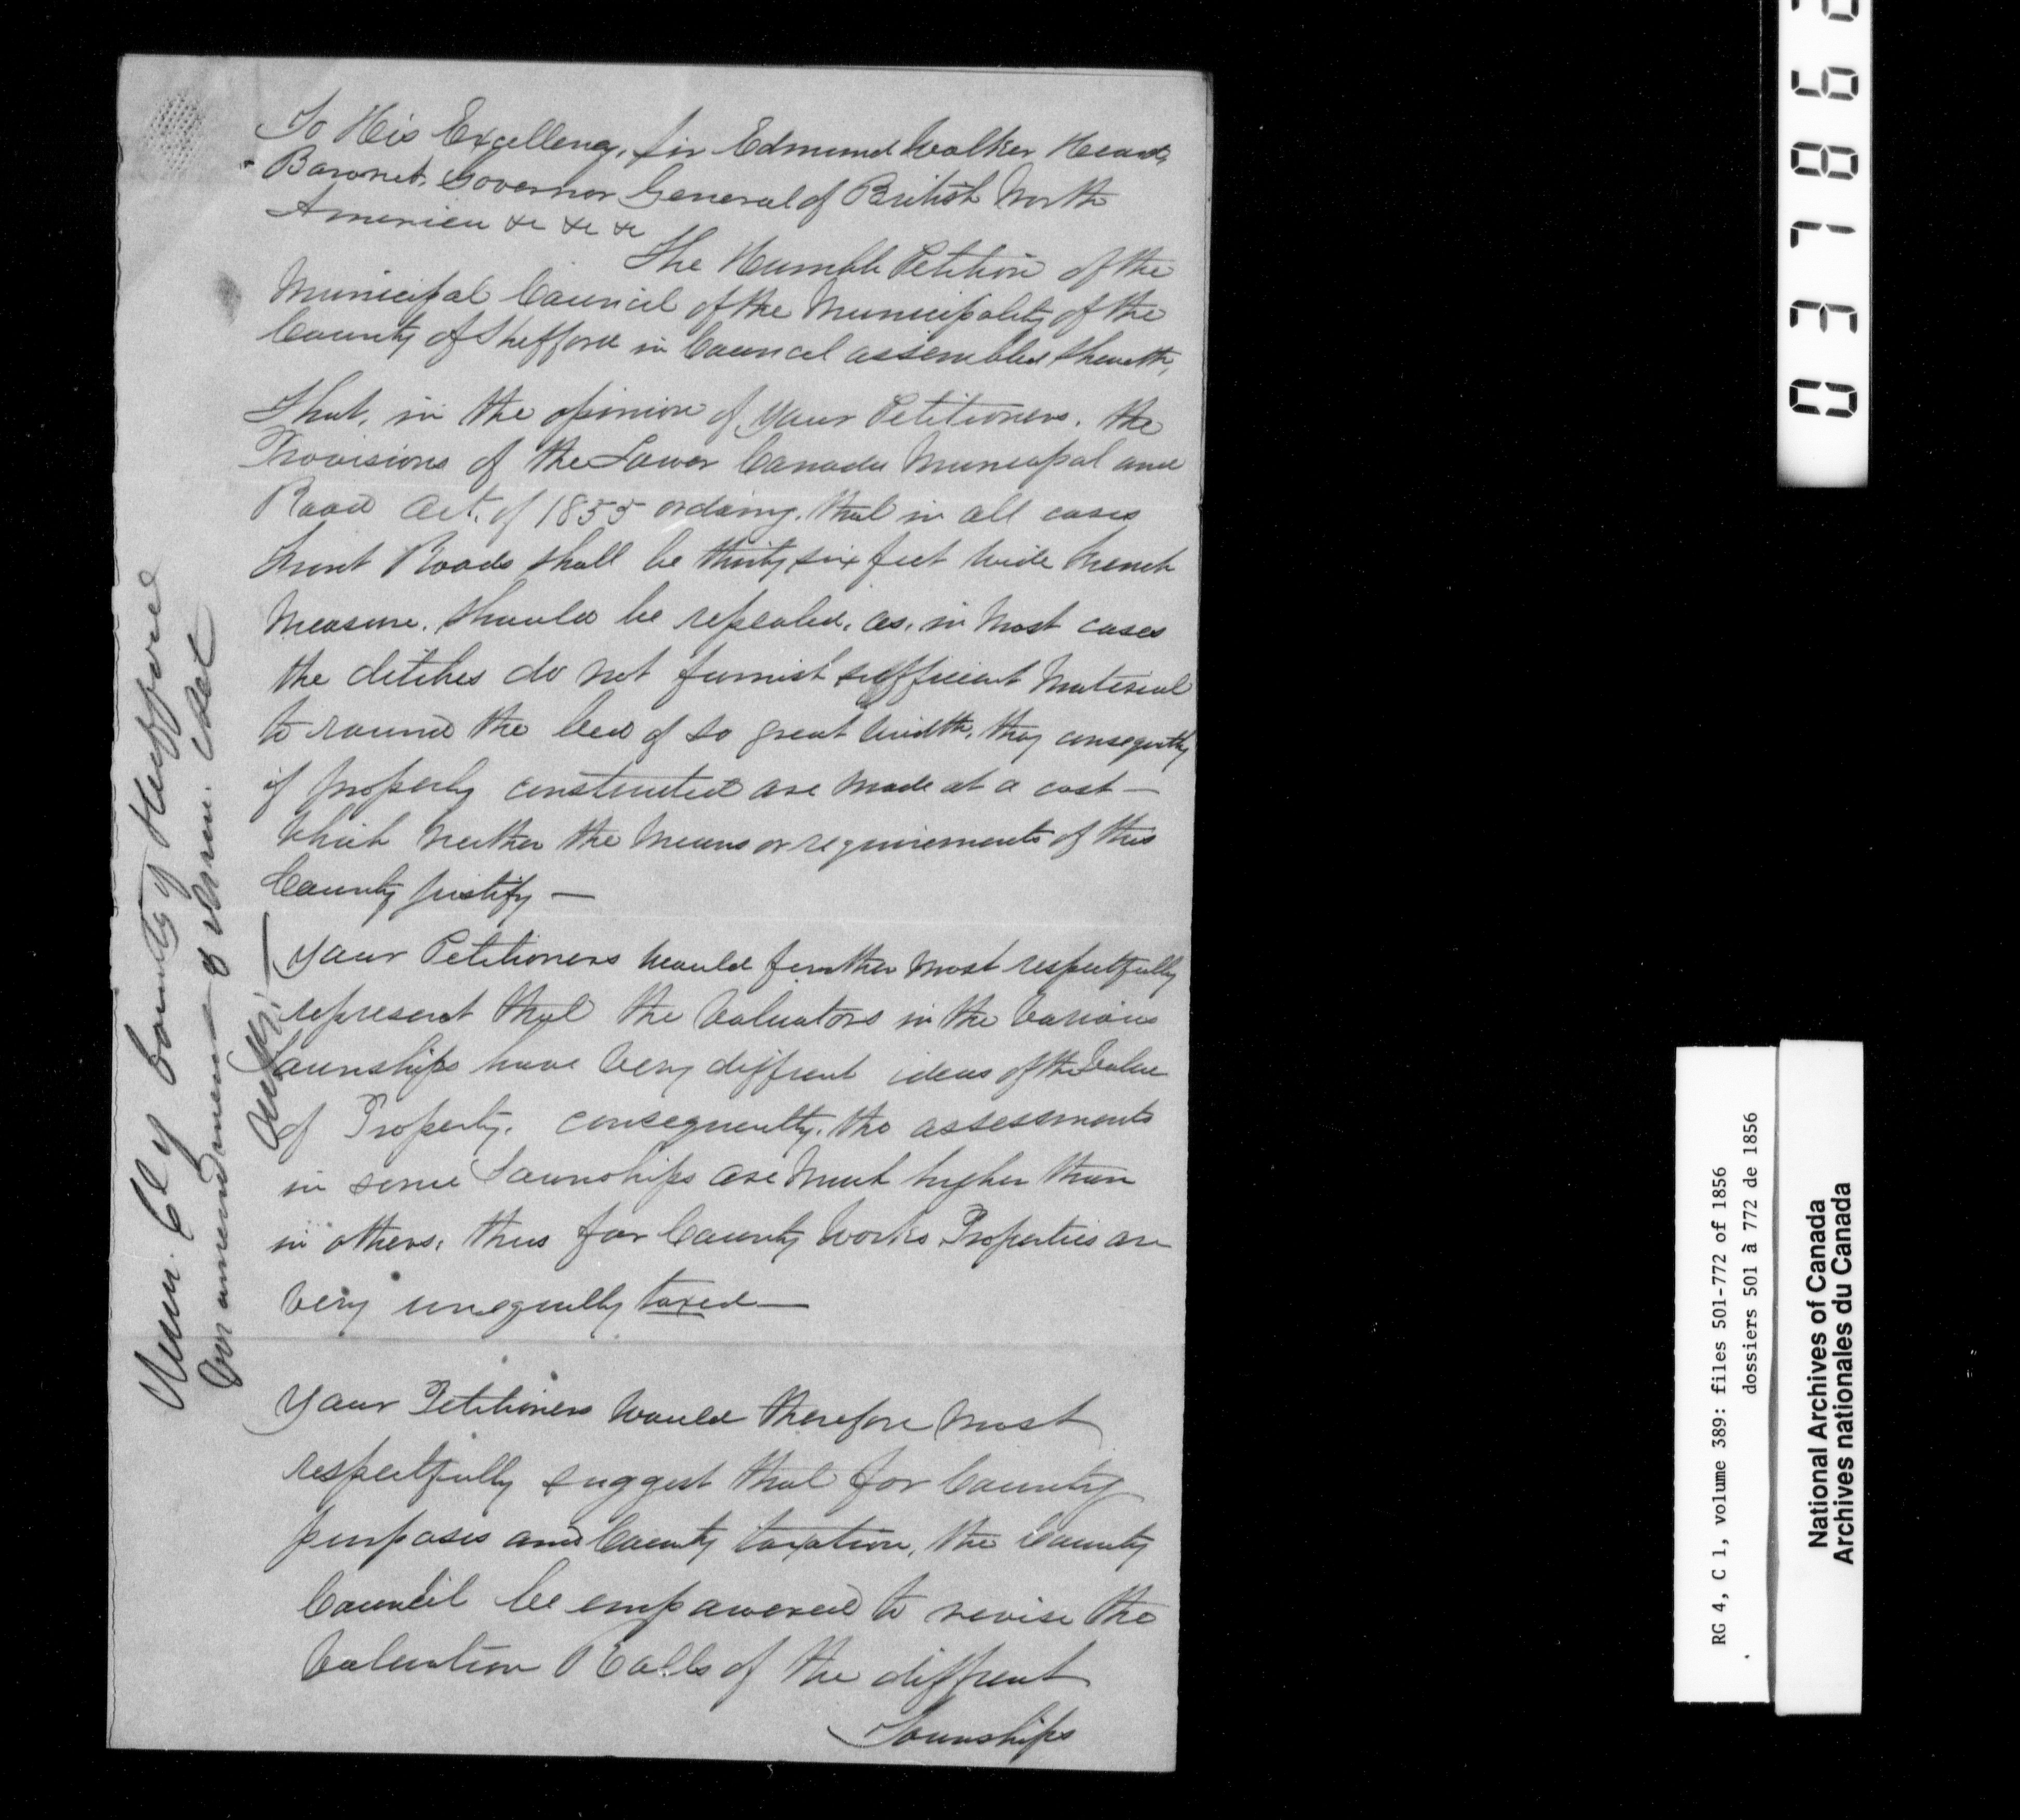 To His Excellency, Sir Edmund Walker Head,
Baronet, Governor General of British North
America &c &c &c
The Humble Petition of the
Municipal Council of the Municipality of the
County of Shefford in Council assembled Sheweth,
That, in the opinion of your Petitioners, the
Provisions of the Lower Canada Municipal and
Road Act, of 1855 ordaing, that in all cases
Front Roads shall be thirty six feet wide French
Measure, should be repealed, as, in most cases
the ditches do not furnish sufficient material
to round the bed of so great width, they conseqently
if properly constructed are made at a cost —
which neither the means or requirements of this
County justify —
Your Petitioners would further most respectfully
represent that the Valuators in the various
Townships have very diffrent ideas of the Value
of Property, consequently, the assessments
in some Townships are much higher than
in others, thus for County Works Properties are
very unequally taxed —
Your Petitioners would therefore most
respectfully suggest that for County
purposes and County taxation, the County
Council be empowered to revise the
Valuation Rolls of the diffrent
Townships
Mun. Cly County of Shefford
for amendment of Mun. Act
037862
RG 4, C 1, volume 389: files 501-772 of 1856
dossiers 501 à 772 de 1856
National Archives of Canada
Archives nationales du Canada